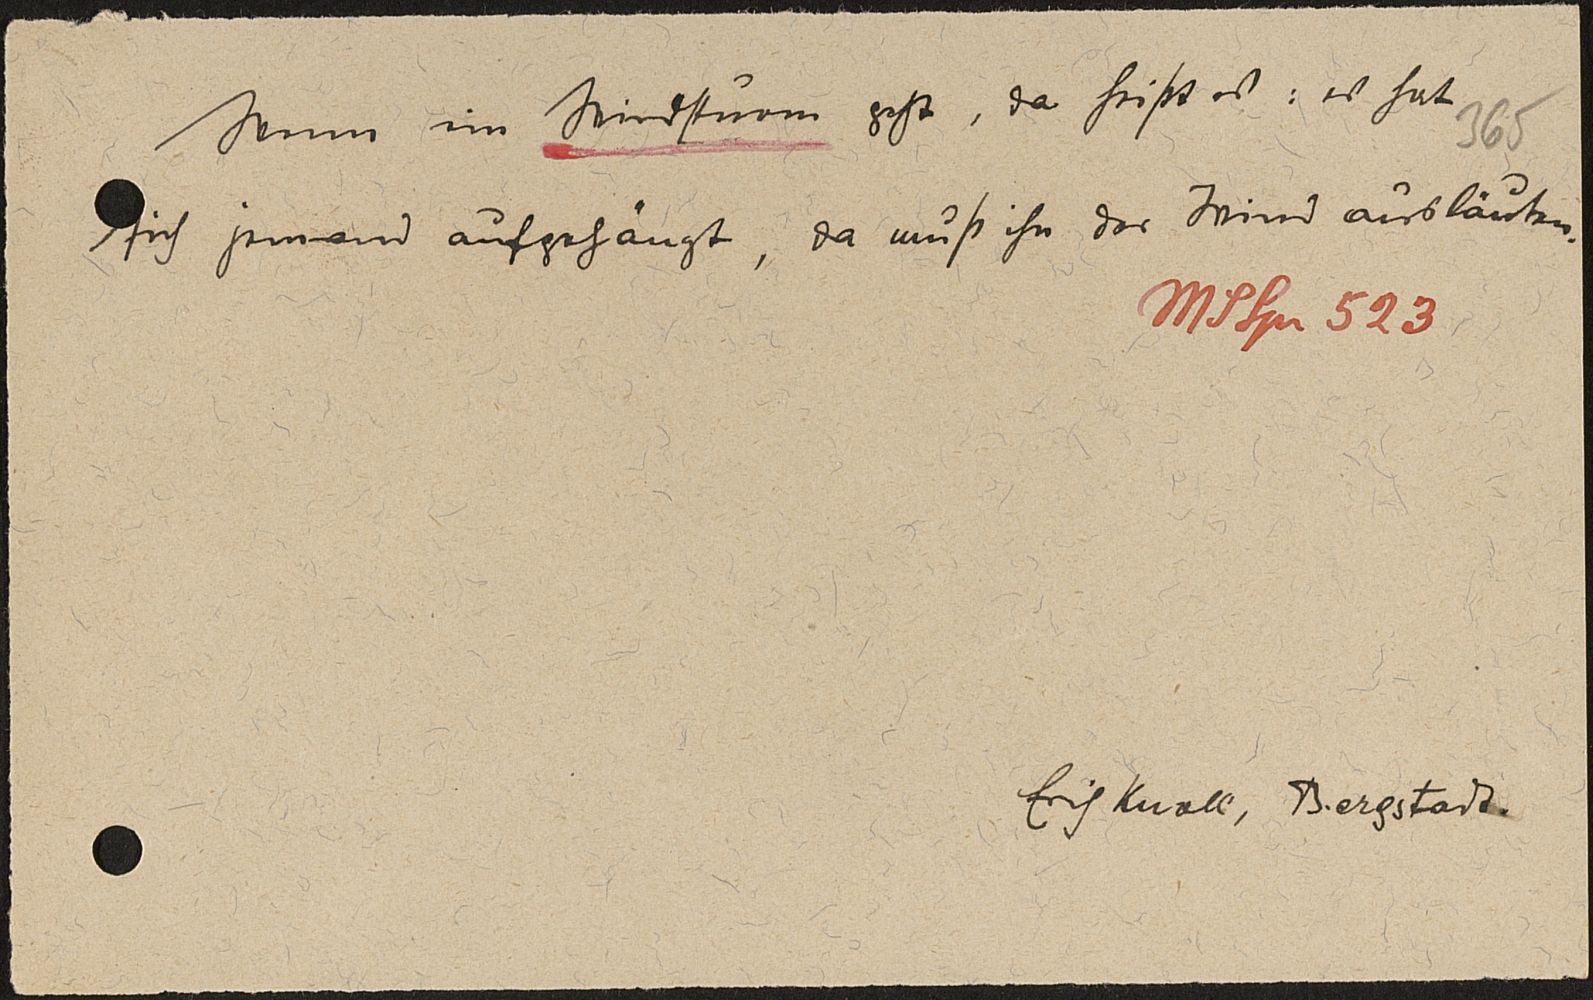 Wenn ein Windsturm geht, da heißt es: es hat
365
sich jemand aufgehängt, da muß ihn der Wind ausläuten.
523
Erich Knoll, Bergstadt.